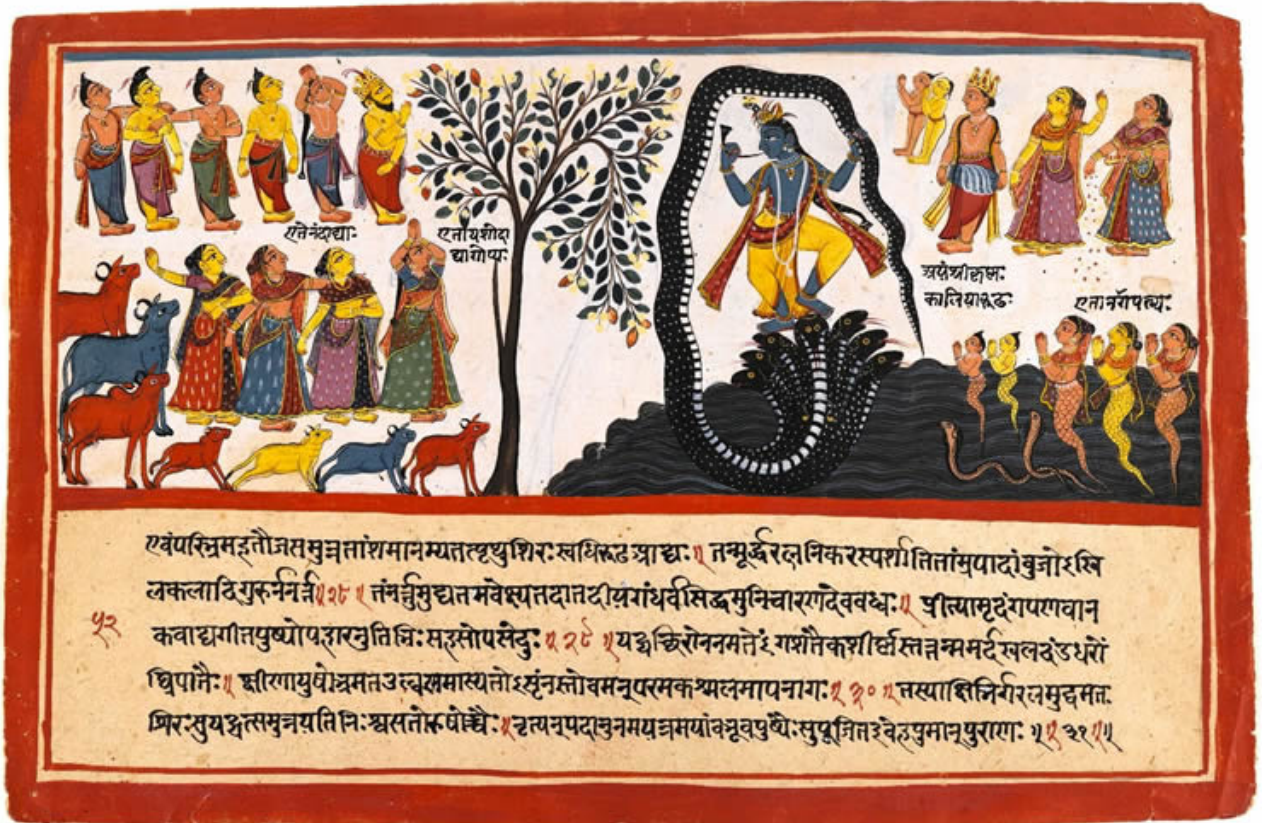 एतेनंदाद्याः
एतायशोदा
द्यागोप्यः
अयंश्रीकृष्णः
कालियारूढः
एतानागपत्न्यः
एवंपरिभ्रमहतौजसमुन्नतांशमानम्यतत्पृथुशिरःस्वधिरूढआद्यः॥ तन्मूर्द्धरत्ननिकरस्पर्शातितांम्रपादांबुजोऽखि
लकलादिगुरुर्ननर्त्त॥२८॥ तंनर्त्तुमुद्यतमवेक्ष्यतदातदीयगंधर्वसिद्धमुनिचारणदेववध्वः॥ प्रीत्यामृदंगपणवान
५२
कवाद्यगीतपुष्योपहारनुतिभिःसहसोपसेदुः॥२९॥ यद्यच्छिरोननमतेंऽगशतैकशीर्ष्णस्तत्तन्ममर्दखलदंडधरों
घ्रिपातैः॥ क्षीणायुषोभ्रमतउल्बणमास्यतोऽसृंनस्तोवमन्परमकश्मलमापनागः॥३०॥ तस्याक्षिभिर्गरलमुद्वमतः
शिरःसुयद्यत्समुन्नयतिनिःश्वसतोरुषोच्चैः॥ नृत्यन्पदानुनमयन्दमयांबभूवपुष्पैःसुपूजितइवेहपुमान्पुराणः॥३१॥